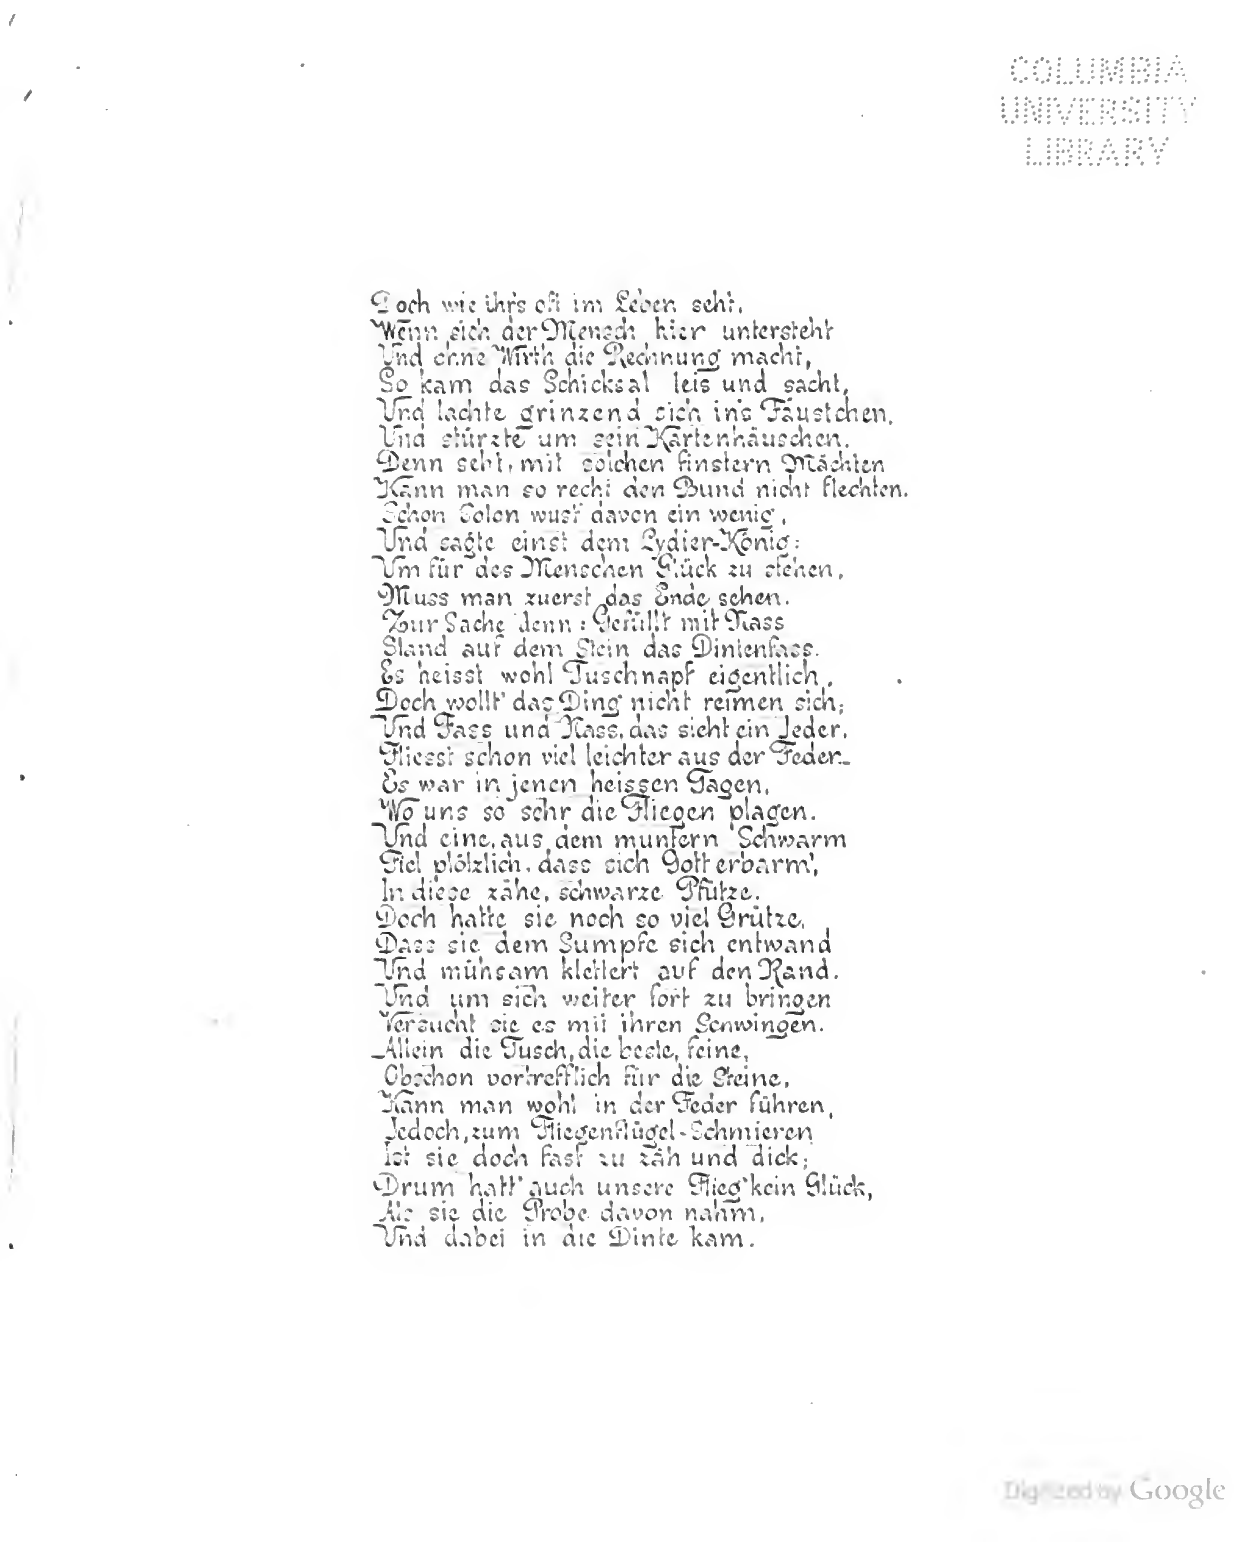 COLUMBIA
UNIVERSITY
LIBRARY
Doch wie ihr's oft im Leben seht,
Wenn sich der Mensch hier untersteht
Und ohne Wirth die Rechnung macht,
So kam das Schicksal leis und sacht,
Und lachte grinzend sich in's Fäustchen,
Und stürzte um sein Kartenhäuschen.
Denn seht, mit solchen finstern Mächten
Kann man so recht den Bund nicht flechten.
Schon Solon wust' davon ein wenig,
Und sagte einst dem Lydier-König:
Um für des Menschen Glück zu stehen,
Muss man zuerst das Ende sehen.
Zur Sache denn: Gefüllt mit Nass
Stand auf dem Stein das Dintenfass.
Es heisst wohl Tuschnapf eigentlich,
Doch wollt' das Ding nicht reimen sich;
Und Fass und Nass, das sieht ein Jeder,
Fliesst schon viel leichter aus der Feder._
Es war in jenen heissen Tagen,
Wo uns so sehr die Fliegen plagen.
Und eine, aus dem muntern Schwarm
Fiel plötzlich, dass sich Gott erbarm',
In diese zähe, schwarze Pfütze.
Doch hatte sie noch so viel Grütze,
Dass sie dem Sumpfe sich entwand
Und mühsam klettert auf den Rand.
Und um sich weiter fort zu bringen
Versucht sie es mit ihren Schwingen.
Allein die Tusch, die beste, feine,
Obschon vortrefflich für die Steine,
Kann man wohl in der Feder führen,
Jedoch, zum Fliegenflügel-Schmieren
Ist sie doch fast zu zäh und dick;
Drum hatt' auch unsere Flieg' kein Glück,
Als sie die Probe davon nahm,
Und dabei in die Dinte kam.
Digitized by Google